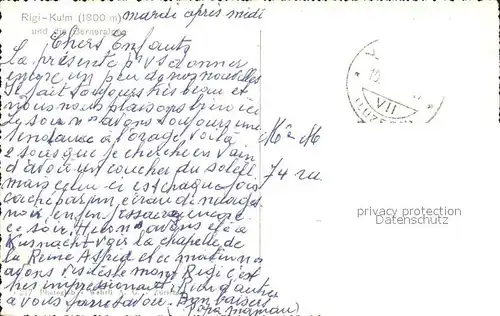 Rigi-Kulm (1800 m) mardi après midi
und die Berneralpen
Chers Enfants
La présente p. vs donner
encore un peu de nos nouvelles
Il fait toujours très beau et
nous nous plaisons bien ici
Le soir ns avons toujours une
tendance à l'orage voilà
je cherche en vain
d'avoir un coucher du soleil
mais celui-ci est chaque fois
caché par un écran de nuages
noir enfin j'essaierai encore
ce soir Hier ns avons été à
Kusnacht voir la chapelle de
la Reine Astrid et ce matin ns
avons le Rigi c'est
très impressionant Rien d'autre
à vous Bons baisers
(Papa maman)
Mr & M
74 rue
VII
LUZERN
privacy protection
Datenschutz
Photoglob - Wehrli A. G. Zürich